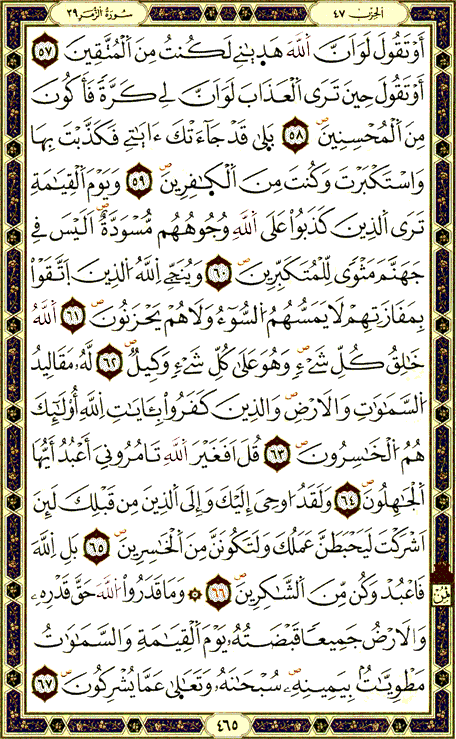 سُورَةُ الزُّمَر ٣٩
الحِزْب ٤٧
أَوْ تَقُولَ لَوَ اَنَّ اَللَّهَ هَدٜىٰنِے لَكُنتُ مِنَ اَلْمُتَّقِينَ ٥٧
أَوْ تَقُولَ حِينَ تَرَى اَلْعَذَابَ لَوَ اَنَّ لِے كَرَّةً فَأَكُونَ
مِنَ اَلْمُحْسِنِينَ ۖ ٥٨ بَلٜىٰ قَدْ جَآءَتْكَ ءَايَٰتِے فَكَذَّبْتَ بِهَا
وَاسْتَكْبَرْتَ وَكُنتَ مِنَ اَلْكٰٜفِرِينَ ۖ ٥٩ وَيَوْمَ اَلْقِيَٰمَةِ
تَرَى اَلذِينَ كَذَبُواْ عَلَى اَللَّهِ وُجُوهُهُم مُّسْوَدَّةٌ ۖ اَلَيْسَ فِے
جَهَنَّمَ مَثْوىً لِّلْمُتَكَبِّرِينَ ۖ ٦٠ وَيُنَجِّے اِللَّهُ اُلذِينَ اَتَّقَوْاْ
بِمَفَازَتِهِمْ لَا يَمَسُّهُمُ اُلسُّوٓءُ وَلَا هُمْ يَحْزَنُونَ ۖ ٦١ اَللَّهُ
خَٰلِقُ كُلِّ شَےْءٍ ۖ وَهُوَ عَلَىٰ كُلِّ شَےْءٍ وَكِيلٌ ۖ ٦٢ لَّهُۥ مَقَالِيدُ
اُلسَّمَٰوَٰتِ وَالَارْضِ ۖ وَالذِينَ كَفَرُواْ بِـَٔايَٰتِ اِللَّهِ أُوْلَٰٓئِكَ
هُمُ اُلْخَٰسِرُونَ ۖ ٦٣ قُلَ اَفَغَيْرَ اَللَّهِ تَامُرُونِيَ أَعْبُدُ أَيُّهَا
اَلْجَٰهِلُونَ ۖ ٦٤ وَلَقَدُ ا۟وحِيَ إِلَيْكَ وَإِلَى اَلذِينَ مِن قَبْلِكَ لَئِنَ
اَشْرَكْتَ لَيَحْبَطَنَّ عَمَلُكَ وَلَتَكُونَنَّ مِنَ اَلْخَٰسِرِينَ ۖ ٦٥ بَلِ اِللَّهَ
فَاعْبُدْ وَكُن مِّنَ اَلشَّٰكِرِينَ ۖ ٦٦ ۞ وَمَا قَدَرُواْ اُللَّهَ حَقَّ قَدْرِهِۦ
وَالَارْضُ جَمِيعاً قَبْضَتُهُۥ يَوْمَ اَلْقِيَٰمَةِ وَالسَّمَٰوَٰتُ
مَطْوِيَّٰتُۢ بِيَمِينِهِۦ ۖ سُبْحَٰنَهُۥ وَتَعَٰلٜىٰ عَمَّا يُشْرِكُونَ ۖ ٦٧
ثمن
٤٦٥